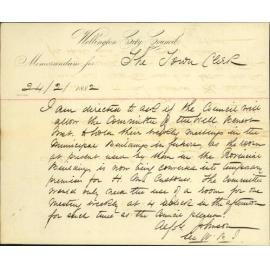 Wellington City Council
Memorandum for The Town Clerk
24/2/1892
I am directed to ask if the Council will
allow the Committee of the Well. Benev
Inst. to hold their weekly meetings in the
Municipal Buildings in future, as the room
at present used by them in the Provincial
Buildings is now being converted into temporary
premises for H. M. Customs. The Committee
would only need the use of a room for one
meeting weekly at 4 o'clock in the afternoon
for such time as the Council please.